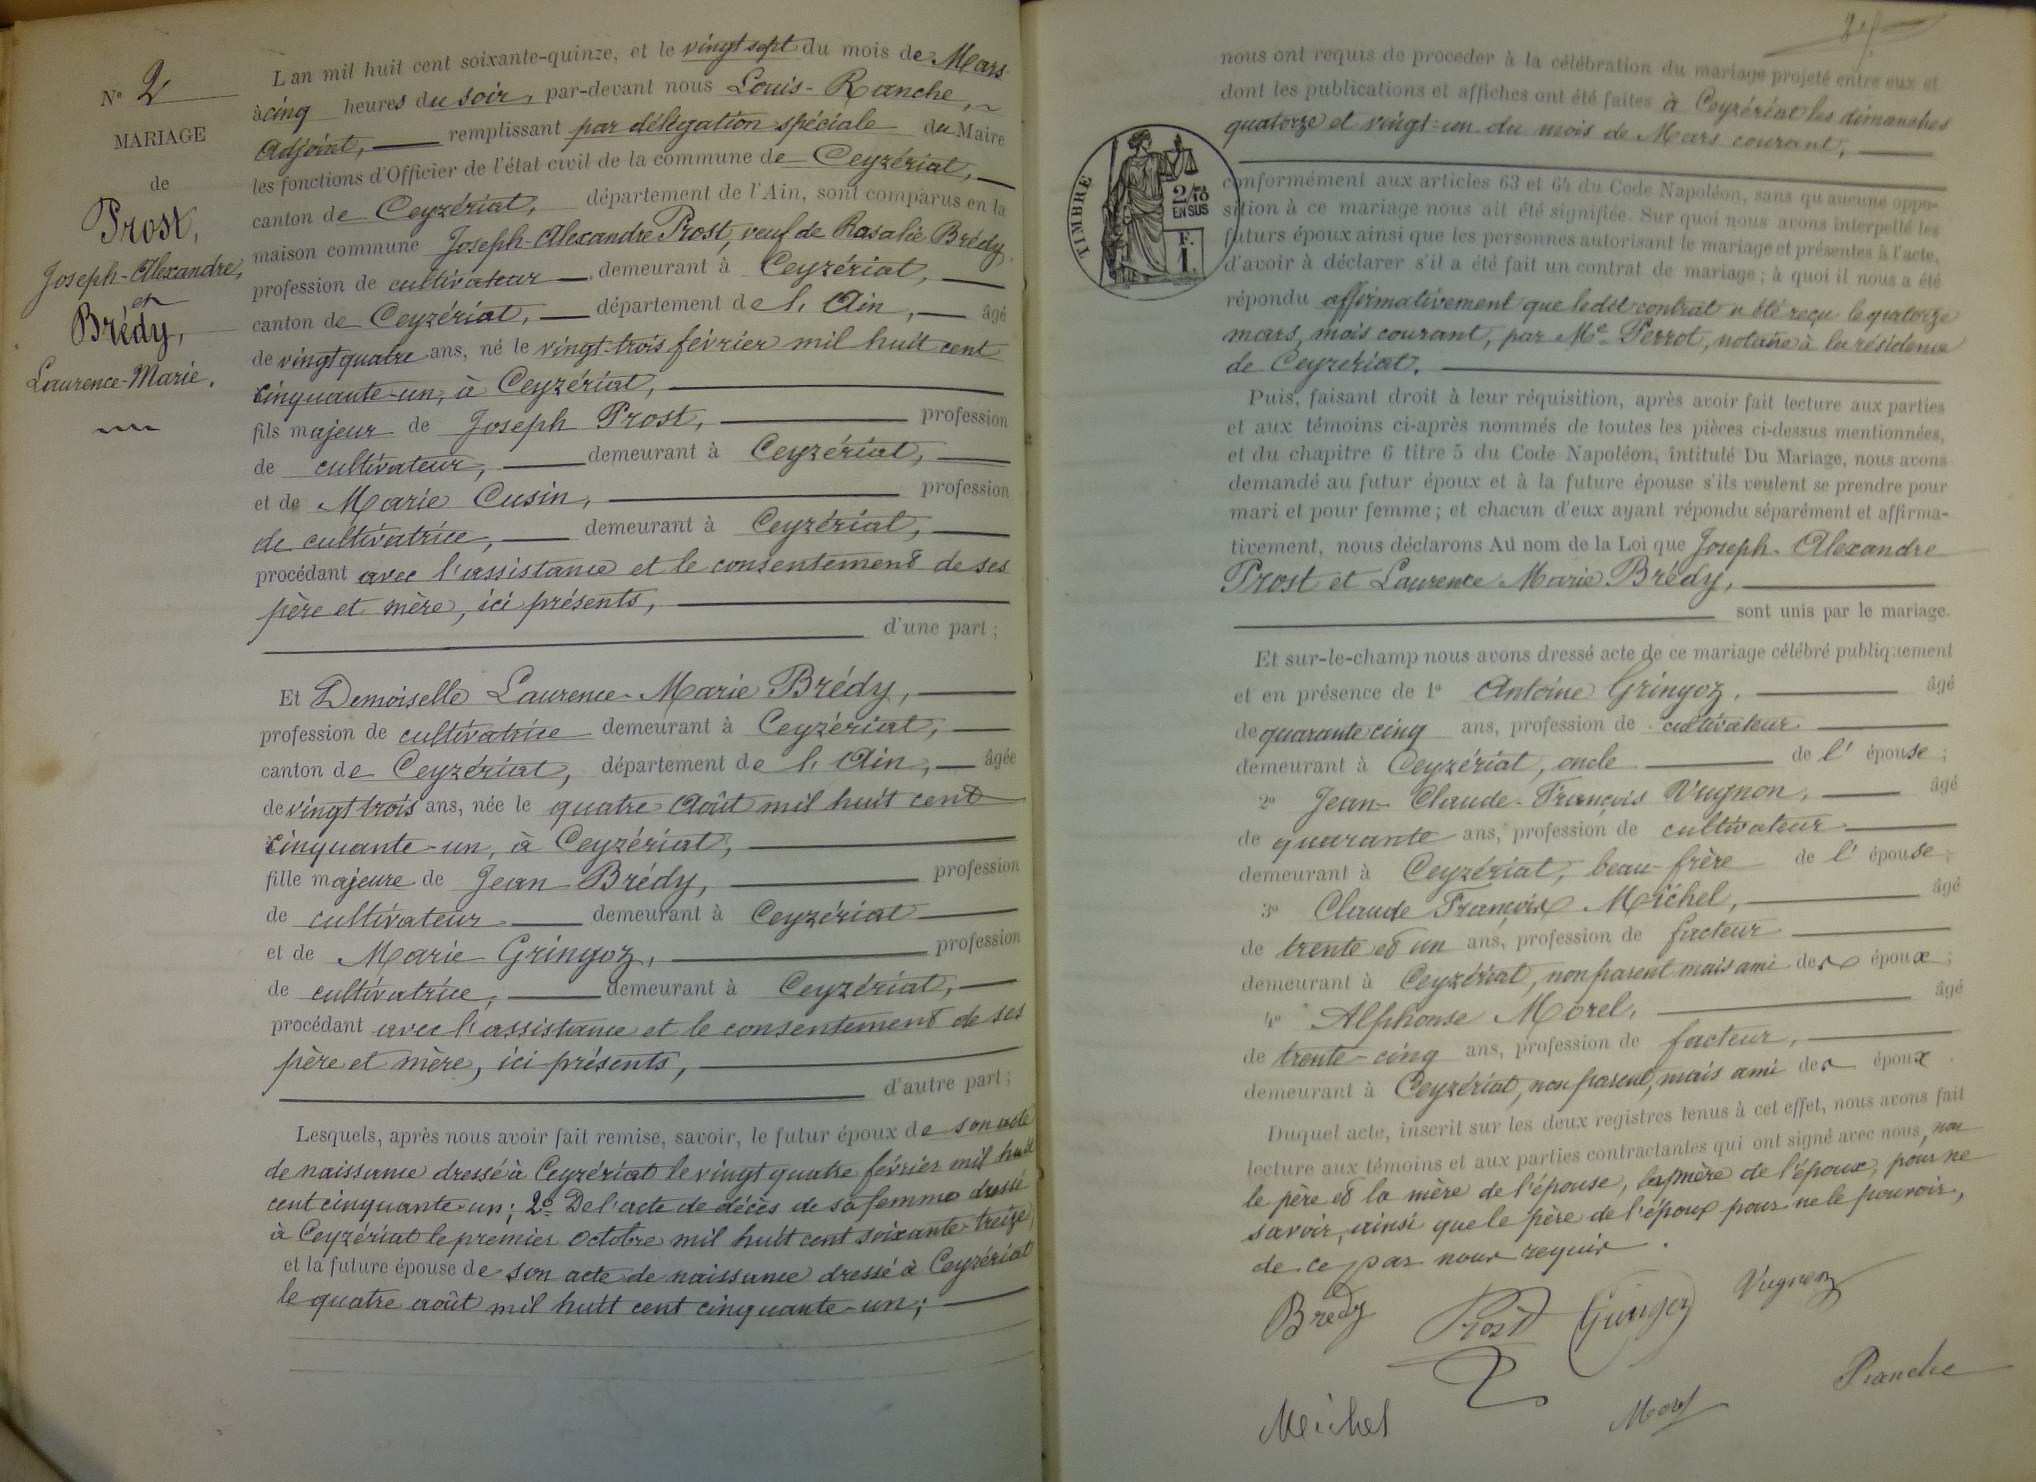 N° 2
MARIAGE
de
Prost,
Joseph-Alexandre,
et
Brédy,
Laurence-Marie.
L'an mil huit cent soixante-quinze, et le vingt sept du mois de Mars
à cinq heures du soir, par-devant nous Louis-Ranche,
Adjoint, remplissant par délégation spéciale du Maire
les fonctions d'Officier de l'état civil de la commune de Ceyzériat,
canton de Ceyzériat, département de l'Ain, sont comparus en la
maison commune Joseph-Alexandre Prost, veuf de Rosalie Brédy,
profession de cultivateur demeurant à Ceyzériat,
canton de Ceyzériat, département de l'Ain, âgé
de vingt quatre ans, né le vingt-trois février mil huit cent
cinquante-un, à Ceyzériat,
fils majeur de Joseph Prost, profession
de cultivateur, demeurant à Ceyzériat,
et de Marie Cusin, profession
de cultivatrice, demeurant à Ceyzériat,
procédant avec l'assistance et le consentement de ses
père et mère, ici présents,
d'une part;
Et Demoiselle Laurence-Marie Brédy,
profession de cultivatrice demeurant à Ceyzériat,
canton de Ceyzériat, département de l'Ain, âgée
de vingt trois ans, née le quatre Août mil huit cent
cinquante-un, à Ceyzériat,
fille majeure de Jean Brédy, profession
de cultivateur demeurant à Ceyzériat
et de Marie Gringoz, profession
de cultivatrice, demeurant à Ceyzériat,
procédant avec l'assistance et le consentement de ses
père et mère, ici présents,
d'autre part;
Lesquels, après nous avoir fait remise, savoir, le futur époux de son acte
de naissance dressé à Ceyzériat le vingt quatre février mil huit
cent cinquante-un; 2° De l'acte de décès de sa femme dressé
à Ceyzériat le premier octobre mil huit cent soixante-treize,
et la future épouse de son acte de naissance dressé à Ceyzériat
le quatre août mil huit cent cinquante-un;
nous ont requis de procéder à la célébration du mariage projeté entre eux et
dont les publications et affiches ont été faites à Ceyzériat les dimanches
quatorze et vingt-un du mois de Mars courant,
TIMBRE
2/10
EN SUS
F.
1.
conformément aux articles 63 et 64 du Code Napoléon, sans qu'aucune oppo-
sition à ce mariage nous ait été signifiée. Sur quoi nous avons interpellé les
futurs époux ainsi que les personnes autorisant le mariage et présentes à l'acte,
d'avoir à déclarer s'il a été fait un contrat de mariage; à quoi il nous a été
répondu affirmativement que ledit contrat a été reçu le quatorze
mars, mois courant, par Me Perrot, notaire à la résidence
de Ceyzériat.
Puis, faisant droit à leur réquisition, après avoir fait lecture aux parties
et aux témoins ci-après nommés de toutes les pièces ci-dessus mentionnées,
et du chapitre 6 titre 5 du Code Napoléon, intitulé Du Mariage, nous avons
demandé au futur époux et à la future épouse s'ils veulent se prendre pour
mari et pour femme; et chacun d'eux ayant répondu séparément et affirma-
tivement, nous déclarons Au nom de la Loi que Joseph-Alexandre
Prost et Laurence Marie Brédy,
sont unis par le mariage.
Et sur-le-champ nous avons dressé acte de ce mariage célébré publiquement
et en présence de 1° Antoine Gringoz, âgé
de quarante cinq ans, profession de cultivateur
demeurant à Ceyzériat, oncle de l'épouse;
2° Jean-Claude-François Vugnon, âgé
de quarante ans, profession de cultivateur
demeurant à Ceyzériat, beau-frère de l'épouse;
3° Claude François Michel, âgé
de trente et un ans, profession de facteur
demeurant à Ceyzériat, non parent mais ami des époux;
4° Alphonse Morel, âgé
de trente-cinq ans, profession de facteur,
demeurant à Ceyzériat, non parent, mais ami des époux.
Duquel acte, inscrit sur les deux registres tenus à cet effet, nous avons fait
lecture aux témoins et aux parties contractantes qui ont signé avec nous, non
le père et la mère de l'épouse, la mère de l'époux, pour ne
savoir, ainsi que le père de l'époux pour ne le pouvoir,
de ce par nous requis.
Brédy Prost Gringoz Vugnon
Michel Morel Ranche